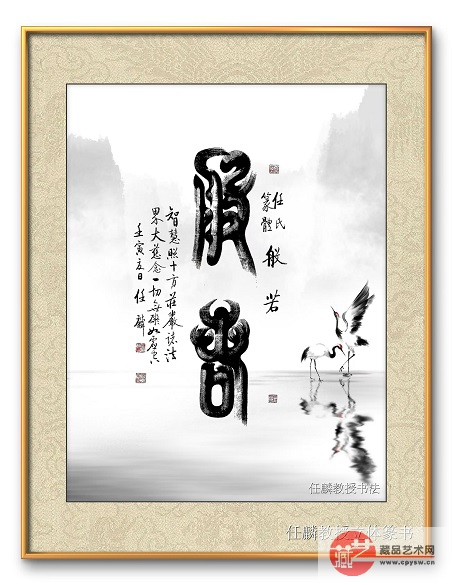 任氏
篆體
般若
般若
智慧照十方莊嚴諸法
界大慈念一切無礙如虛空
壬寅 日任麟
任麟教授书法
任麟教授立体篆书
藏艺
藏品艺术网
www.cpysw.cn